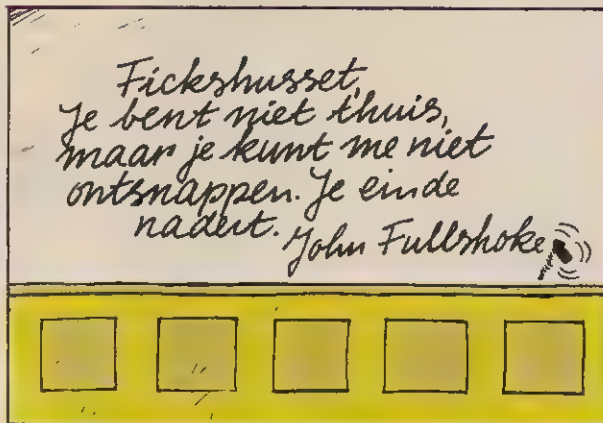 Fickshusset,
Je bent niet thuis,
maar je kunt me niet
ontsnappen. Je einde
nadert.
John Fullshoke